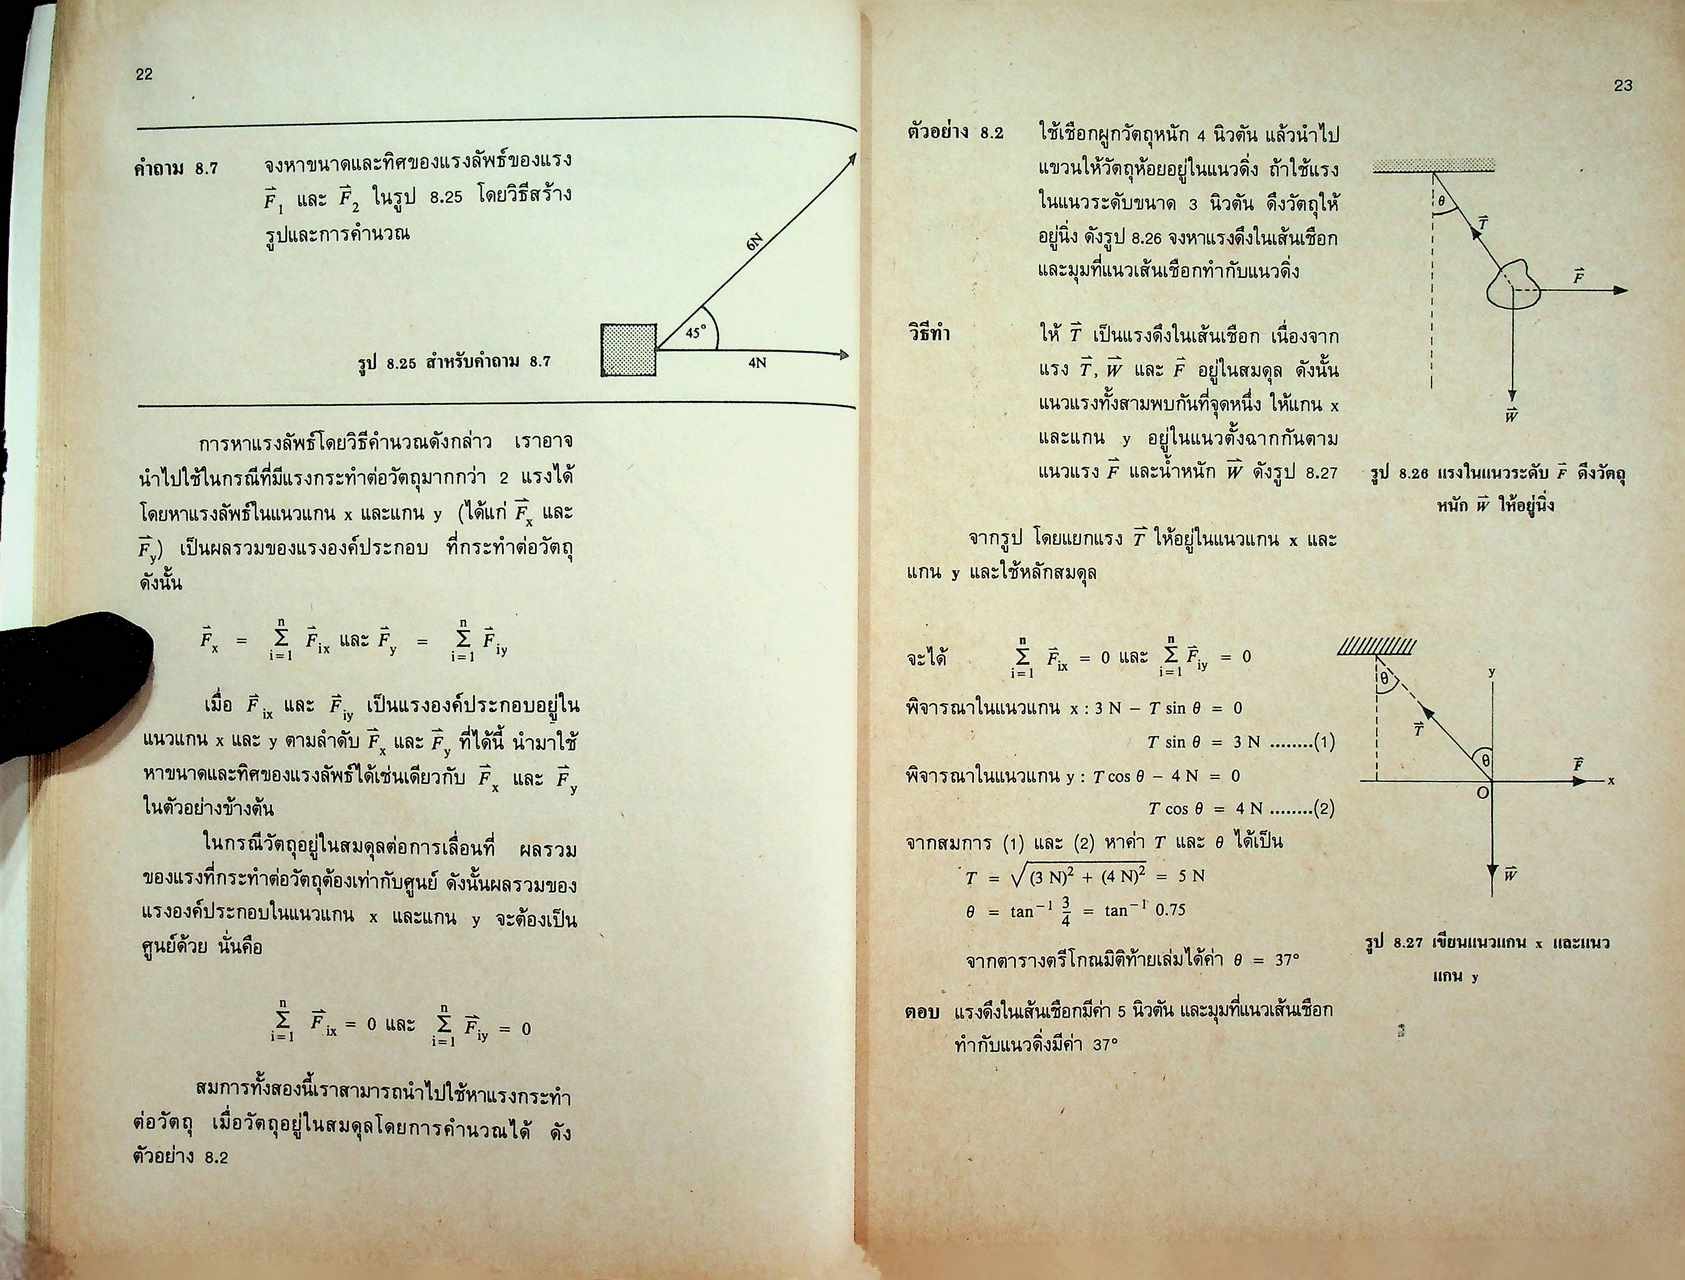 22
คำถาม 8.7 จงหาขนาดและทิศของแรงลัพธ์ของแรง
F⃗₁ และ F⃗₂ ในรูป 8.25 โดยวิธีสร้าง
รูปและการคำนวณ
6N
45°
4N
รูป 8.25 สำหรับคำถาม 8.7
การหาแรงลัพธ์โดยวิธีคำนวณดังกล่าว เราอาจ
นำไปใช้ในกรณีที่มีแรงกระทำต่อวัตถุมากกว่า 2 แรงได้
โดยหาแรงลัพธ์ในแนวแกน x และแกน y (ได้แก่ F⃗x และ
F⃗y) เป็นผลรวมของแรงองค์ประกอบ ที่กระทำต่อวัตถุ
ดังนั้น
F⃗x = n Σ i=1 F⃗ix และ F⃗y = n Σ i=1 F⃗iy
เมื่อ F⃗ix และ F⃗iy เป็นแรงองค์ประกอบอยู่ใน
แนวแกน x และ y ตามลำดับ F⃗x และ F⃗y ที่ได้นี้ นำมาใช้
หาขนาดและทิศของแรงลัพธ์ได้เช่นเดียวกับ F⃗x และ F⃗y
ในตัวอย่างข้างต้น
ในกรณีวัตถุอยู่ในสมดุลต่อการเลื่อนที่ ผลรวม
ของแรงที่กระทำต่อวัตถุต้องเท่ากับศูนย์ ดังนั้นผลรวมของ
แรงองค์ประกอบในแนวแกน x และแกน y จะต้องเป็น
ศูนย์ด้วย นั่นคือ
n Σ i=1 F⃗ix = 0 และ n Σ i=1 F⃗iy = 0
สมการทั้งสองนี้เราสามารถนำไปใช้หาแรงกระทำ
ต่อวัตถุ เมื่อวัตถุอยู่ในสมดุลโดยการคำนวณได้ ดัง
ตัวอย่าง 8.2
23
ตัวอย่าง 8.2 ใช้เชือกผูกวัตถุหนัก 4 นิวตัน แล้วนำไป
แขวนให้วัตถุห้อยอยู่ในแนวดิ่ง ถ้าใช้แรง
ในแนวระดับขนาด 3 นิวตัน ดึงวัตถุให้
อยู่นิ่ง ดังรูป 8.26 จงหาแรงดึงในเส้นเชือก
และมุมที่แนวเส้นเชือกทำกับแนวดิ่ง
θ
T⃗
F⃗
W⃗
รูป 8.26 แรงในแนวระดับ F⃗ ดึงวัตถุ
หนัก W⃗ ให้อยู่นิ่ง
วิธีทำ ให้ T⃗ เป็นแรงดึงในเส้นเชือก เนื่องจาก
แรง T⃗, W⃗ และ F⃗ อยู่ในสมดุล ดังนั้น
แนวแรงทั้งสามพบกันที่จุดหนึ่ง ให้แกน x
และแกน y อยู่ในแนวตั้งฉากกันตาม
แนวแรง F⃗ และน้ำหนัก W⃗ ดังรูป 8.27
จากรูป โดยแยกแรง T⃗ ให้อยู่ในแนวแกน x และ
แกน y และใช้หลักสมดุล
จะได้ n Σ i=1 F⃗ix = 0 และ n Σ i=1 F⃗iy = 0
พิจารณาในแนวแกน x : 3 N − T sin θ = 0
T sin θ = 3 N ........(1)
พิจารณาในแนวแกน y : T cos θ − 4 N = 0
T cos θ = 4 N ........(2)
จากสมการ (1) และ (2) หาค่า T และ θ ได้เป็น
T = √(3 N)² + (4 N)² = 5 N
θ = tan⁻¹ 3/4 = tan⁻¹ 0.75
จากตารางตรีโกณมิติท้ายเล่มได้ค่า θ = 37°
ตอบ แรงดึงในเส้นเชือกมีค่า 5 นิวตัน และมุมที่แนวเส้นเชือก
ทำกับแนวดิ่งมีค่า 37°
θ
y
T⃗
θ
F⃗
x
O
W⃗
รูป 8.27 เขียนแนวแกน x และแนว
แกน y